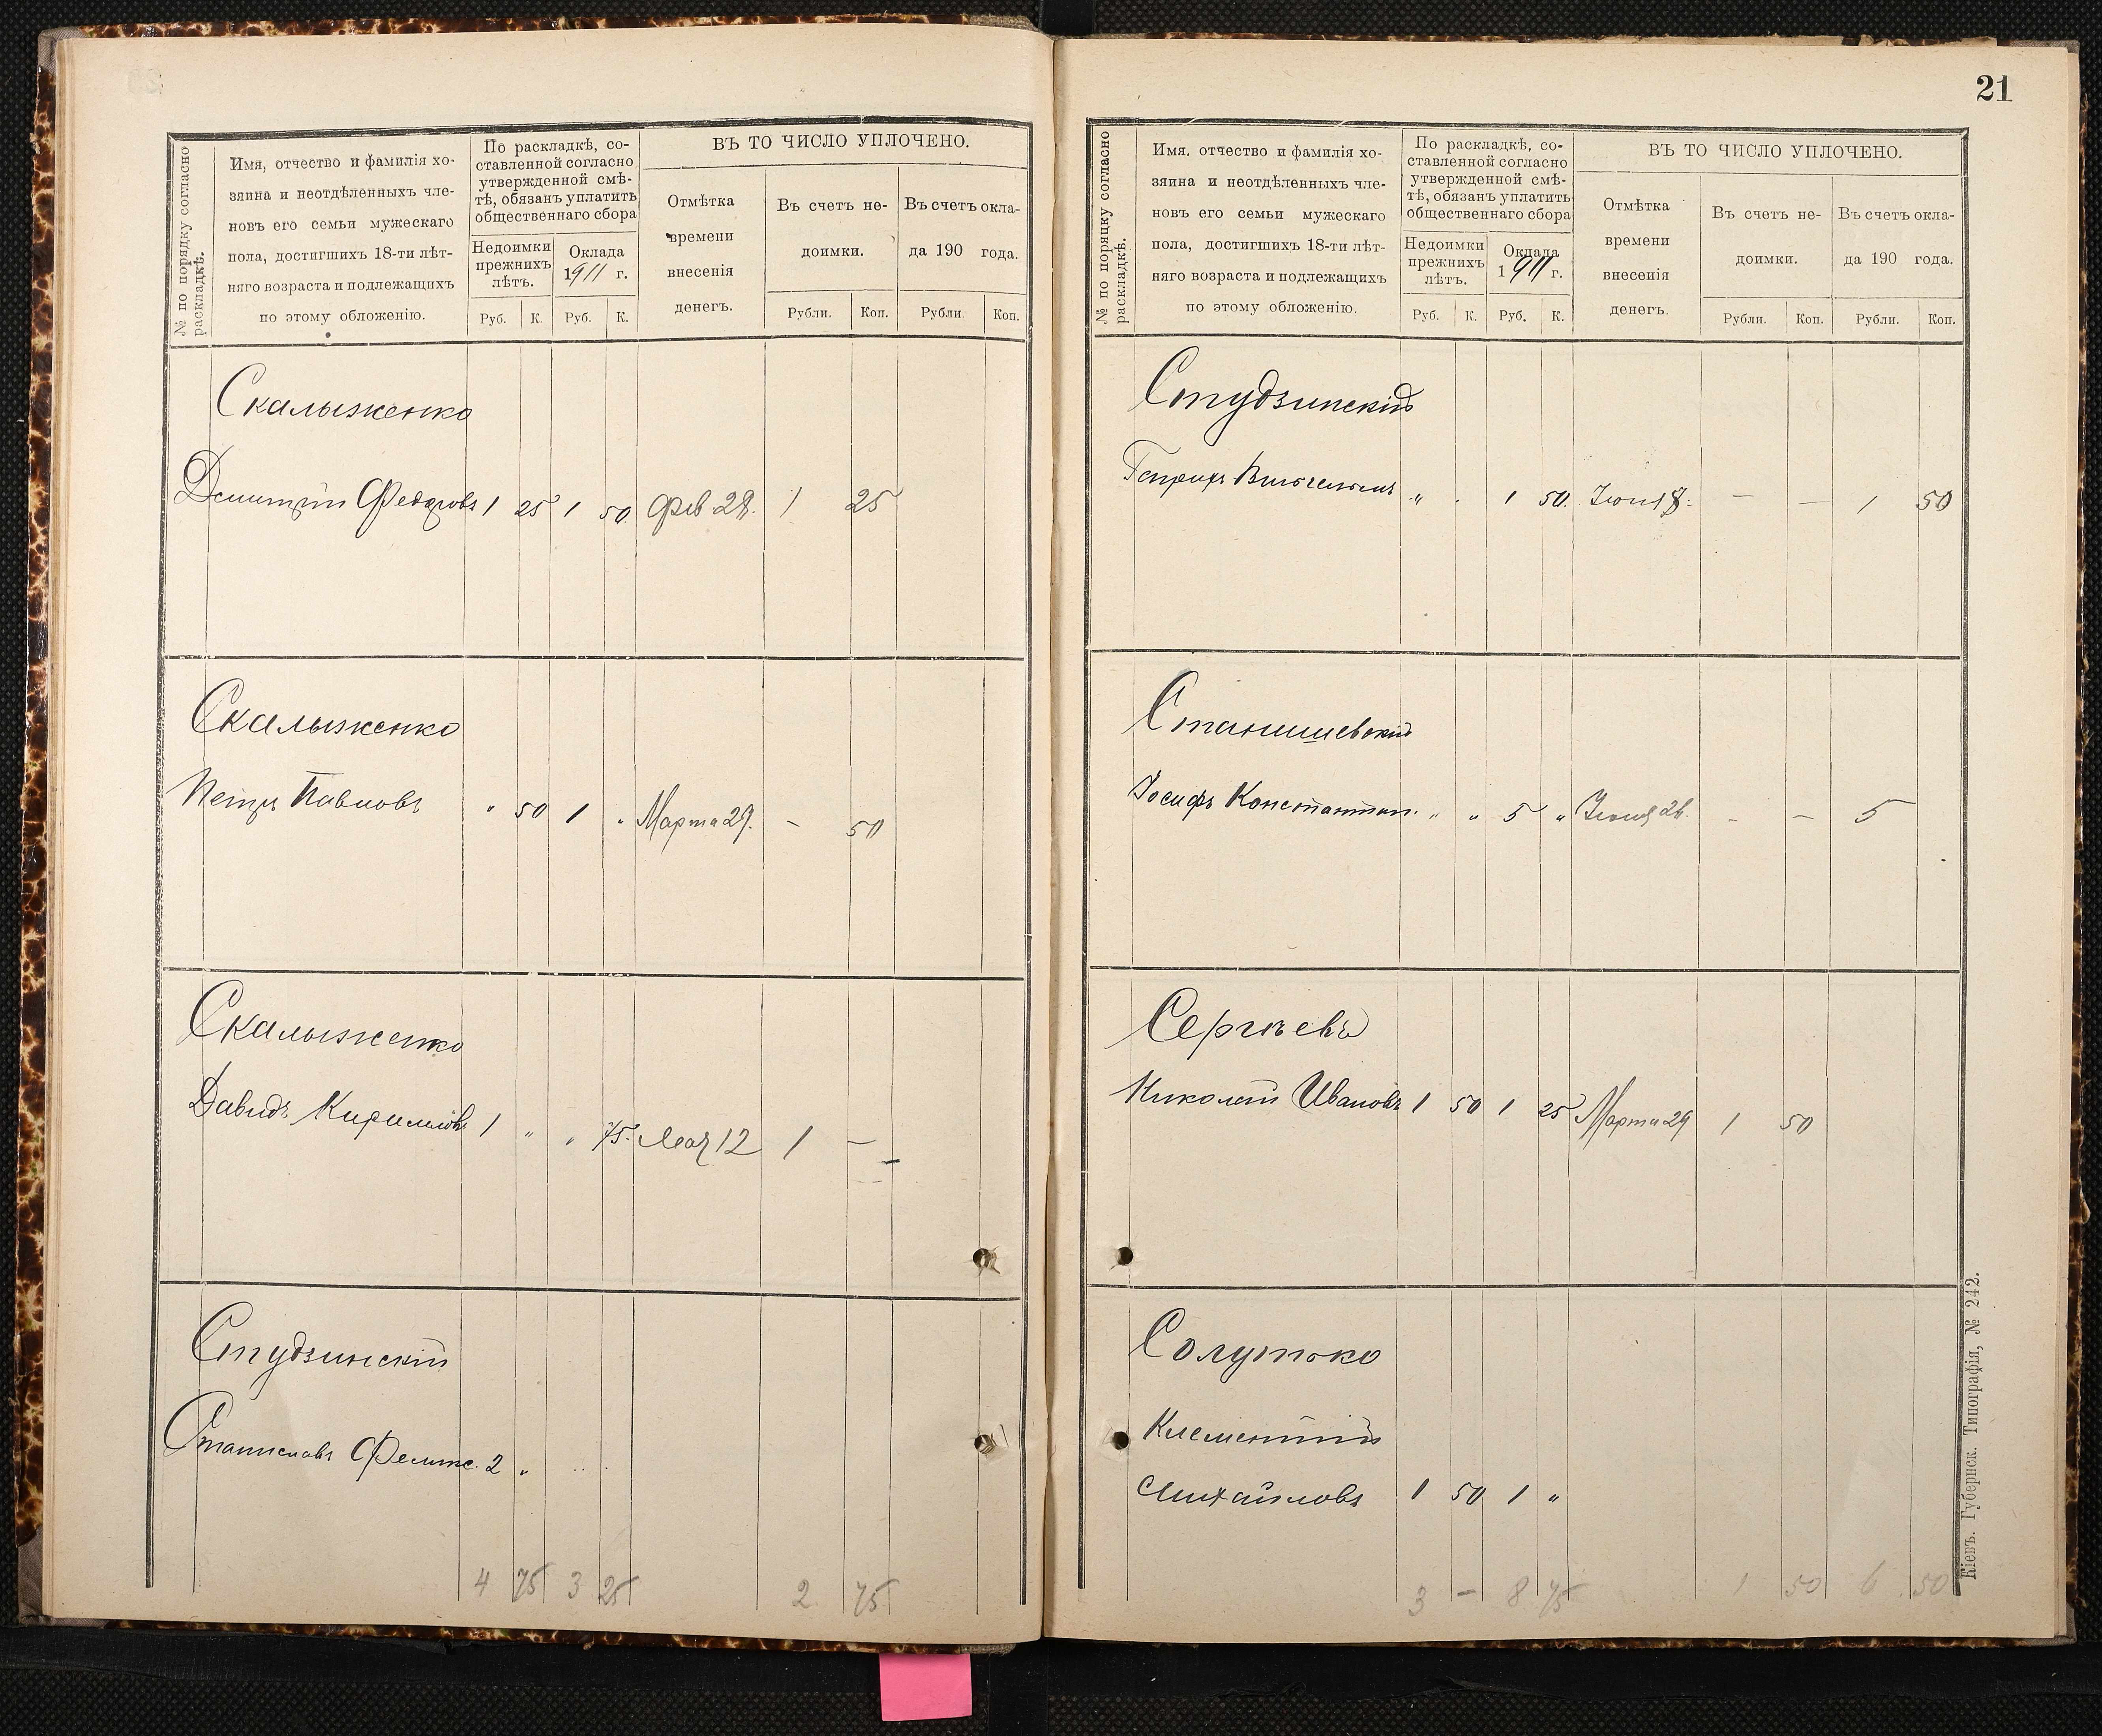 № по порядку согласно
раскладкѣ.
Имя, отчество и фамилія хо-
зяина и неотдѣленныхъ чле-
новъ его семьи мужескаго
пола, достигшихъ 18-ти лѣт-
няго возраста и подлежащихъ
по этому обложенію.
По раскладкѣ, со-
ставленной согласно
утвержденной смѣ-
тѣ, обязанъ уплатить
общественнаго сбора
Недоимки
прежнихъ
лѣтъ.
Оклада
1911 г.
Руб. К. Руб. К.
ВЪ ТО ЧИСЛО УПЛОЧЕНО.
Отмѣтка
времени
внесенія
денегъ.
Въ счетъ не-
доимки.
Рубли. Коп.
Въ счетъ окла-
да 190 года.
Рубли Коп.
Скалыженко
Дмитрій Федоровъ 1 25 1 50 Фев 28. 1 25
Скалыженко
Петръ Павловъ " 50 1 " Марта 29. - 50
Скалыженко
Давидъ Кириловъ 1 " " 75. Мая 12 1 —
Студзинскій
Станиславъ Феликс. 2 "
4 75 3 25 2 75
21
№ по порядку согласно
раскладкѣ.
Имя. отчество и фамилія хо-
зяина и неотдѣленныхъ чле-
новъ его семьи мужескаго
пола, достигшихъ 18-ти лѣт-
няго возраста и подлежащихъ
по этому обложенію.
По раскладкѣ, со-
ставленной согласно
утвержденной смѣ-
тѣ, обязанъ уплатить
общественнаго сбора
Недоимки
прежнихъ
лѣтъ.
Оклада
1911 г.
Руб. К. Руб. К.
ВЪ ТО ЧИСЛО УПЛОЧЕНО.
Отмѣтка
времени
внесенія
денегъ.
Въ счетъ не-
доимки.
Рубли. Коп.
Въ счетъ окла-
да 190 года.
Рубли. Коп.
Студзинскій
" 1 50. — — 1 50
Станишевскій
Іосифъ Константин. " " 5 " 26. - — 5
Сергѣевъ
Николай Ивановъ 1 50 1 25 Марта 29 1 50
Солутко
Климентій
Михайловъ 1 50 1 "
3 - 8 75 1 50 6 50
Кіевъ. Губернск. Типографія, № 242.